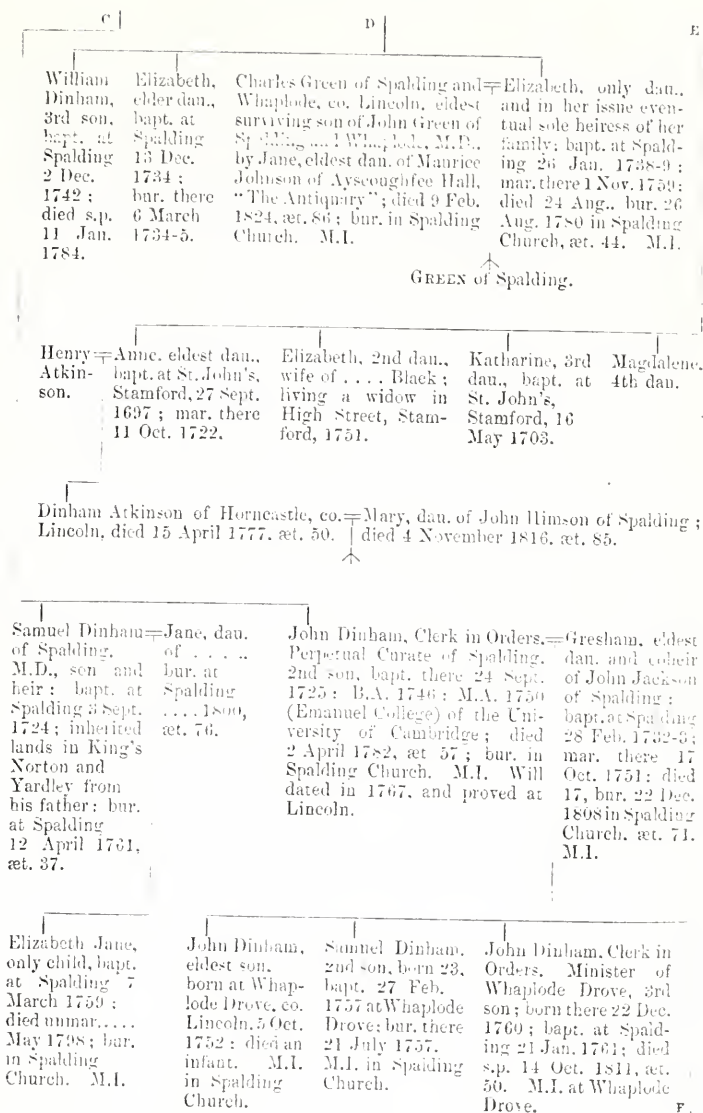 C D E
William
Dinham,
3rd son,
bapt. at
Spalding
2 Dec.
1742 :
died s.p.
11 Jan.
1784.
Elizabeth,
elder dau.,
bapt. at
Spalding
13 Dec.
1734 ;
bur. there
6 March
1734-5.
Charles Green of Spalding and
Whaplode, co. Lincoln, eldest
surviving son of John Green of
Spalding and Whaplode, M.D.,
by Jane, eldest dau. of Maurice
Johnson of Ayscoughfee Hall,
“The Antiquary”; died 9 Feb.
1824, æt. 86 ; bur. in Spalding
Church. M.I.
=Elizabeth, only dau.,
and in her issue even-
tual sole heiress of her
family; bapt. at Spald-
ing 26 Jan. 1738-9 ;
mar. there 1 Nov. 1759;
died 24 Aug., bur. 26
Aug. 1780 in Spalding
Church, æt. 44. M.I.
GREEN of Spalding.
Henry
Atkin-
son.
=Anne, eldest dau.,
bapt. at St. John's,
Stamford, 27 Sept.
1697 ; mar. there
11 Oct. 1722.
Elizabeth, 2nd dau.,
wife of .... Black ;
living a widow in
High Street, Stam-
ford, 1751.
Katharine, 3rd
dau., bapt. at
St. John's,
Stamford, 16
May 1703.
Magdalene,
4th dau.
Dinham Atkinson of Horncastle, co.=Mary, dau. of John Himson of Spalding ;
Lincoln, died 15 April 1777, æt. 50. died 4 November 1816, æt. 85.
Samuel Dinham
of Spalding,
M.D., son and
heir : bapt. at
Spalding 3 Sept.
1724 ; inherited
lands in King's
Norton and
Yardley from
his father : bur.
at Spalding
12 April 1761,
æt. 37.
=Jane, dau.
of .....
bur. at
Spalding
.... 1800,
æt. 76.
John Dinham, Clerk in Orders,
Perpetual Curate of Spalding,
2nd son, bapt. there 24 Sept.
1725 : B.A. 1746 : M.A. 1750
(Emanuel College) of the Uni-
versity of Cambridge ; died
2 April 1782, æt 57 ; bur. in
Spalding Church. M.I. Will
dated in 1767, and proved at
Lincoln.
=Gresham, eldest
dau. and coheir
of John Jackson
of Spalding :
bapt. at Spalding
28 Feb. 1732-3 ;
mar. there 17
Oct. 1751 : died
17, bur. 22 Dec.
1808 in Spalding
Church, æt. 71.
M.I.
Elizabeth Jane,
only child, bapt.
at Spalding 7
March 1759 ;
died unmar.....
May 1798 ; bur.
in Spalding
Church. M.I.
John Dinham,
eldest son,
born at Whap-
lode Drove, co.
Lincoln, 5 Oct.
1752 : died an
infant. M.I.
in Spalding
Church.
Samuel Dinham,
2nd son, born 23,
bapt. 27 Feb.
1757 at Whaplode
Drove; bur. there
21 July 1757.
M.I. in Spalding
Church.
John Dinham, Clerk in
Orders, Minister of
Whaplode Drove, 3rd
son ; born there 22 Dec.
1760 ; bapt. at Spald-
ing 21 Jan. 1761; died
s.p. 14 Oct. 1811, æt.
50. M.I. at Whaplode
Drove.
F.